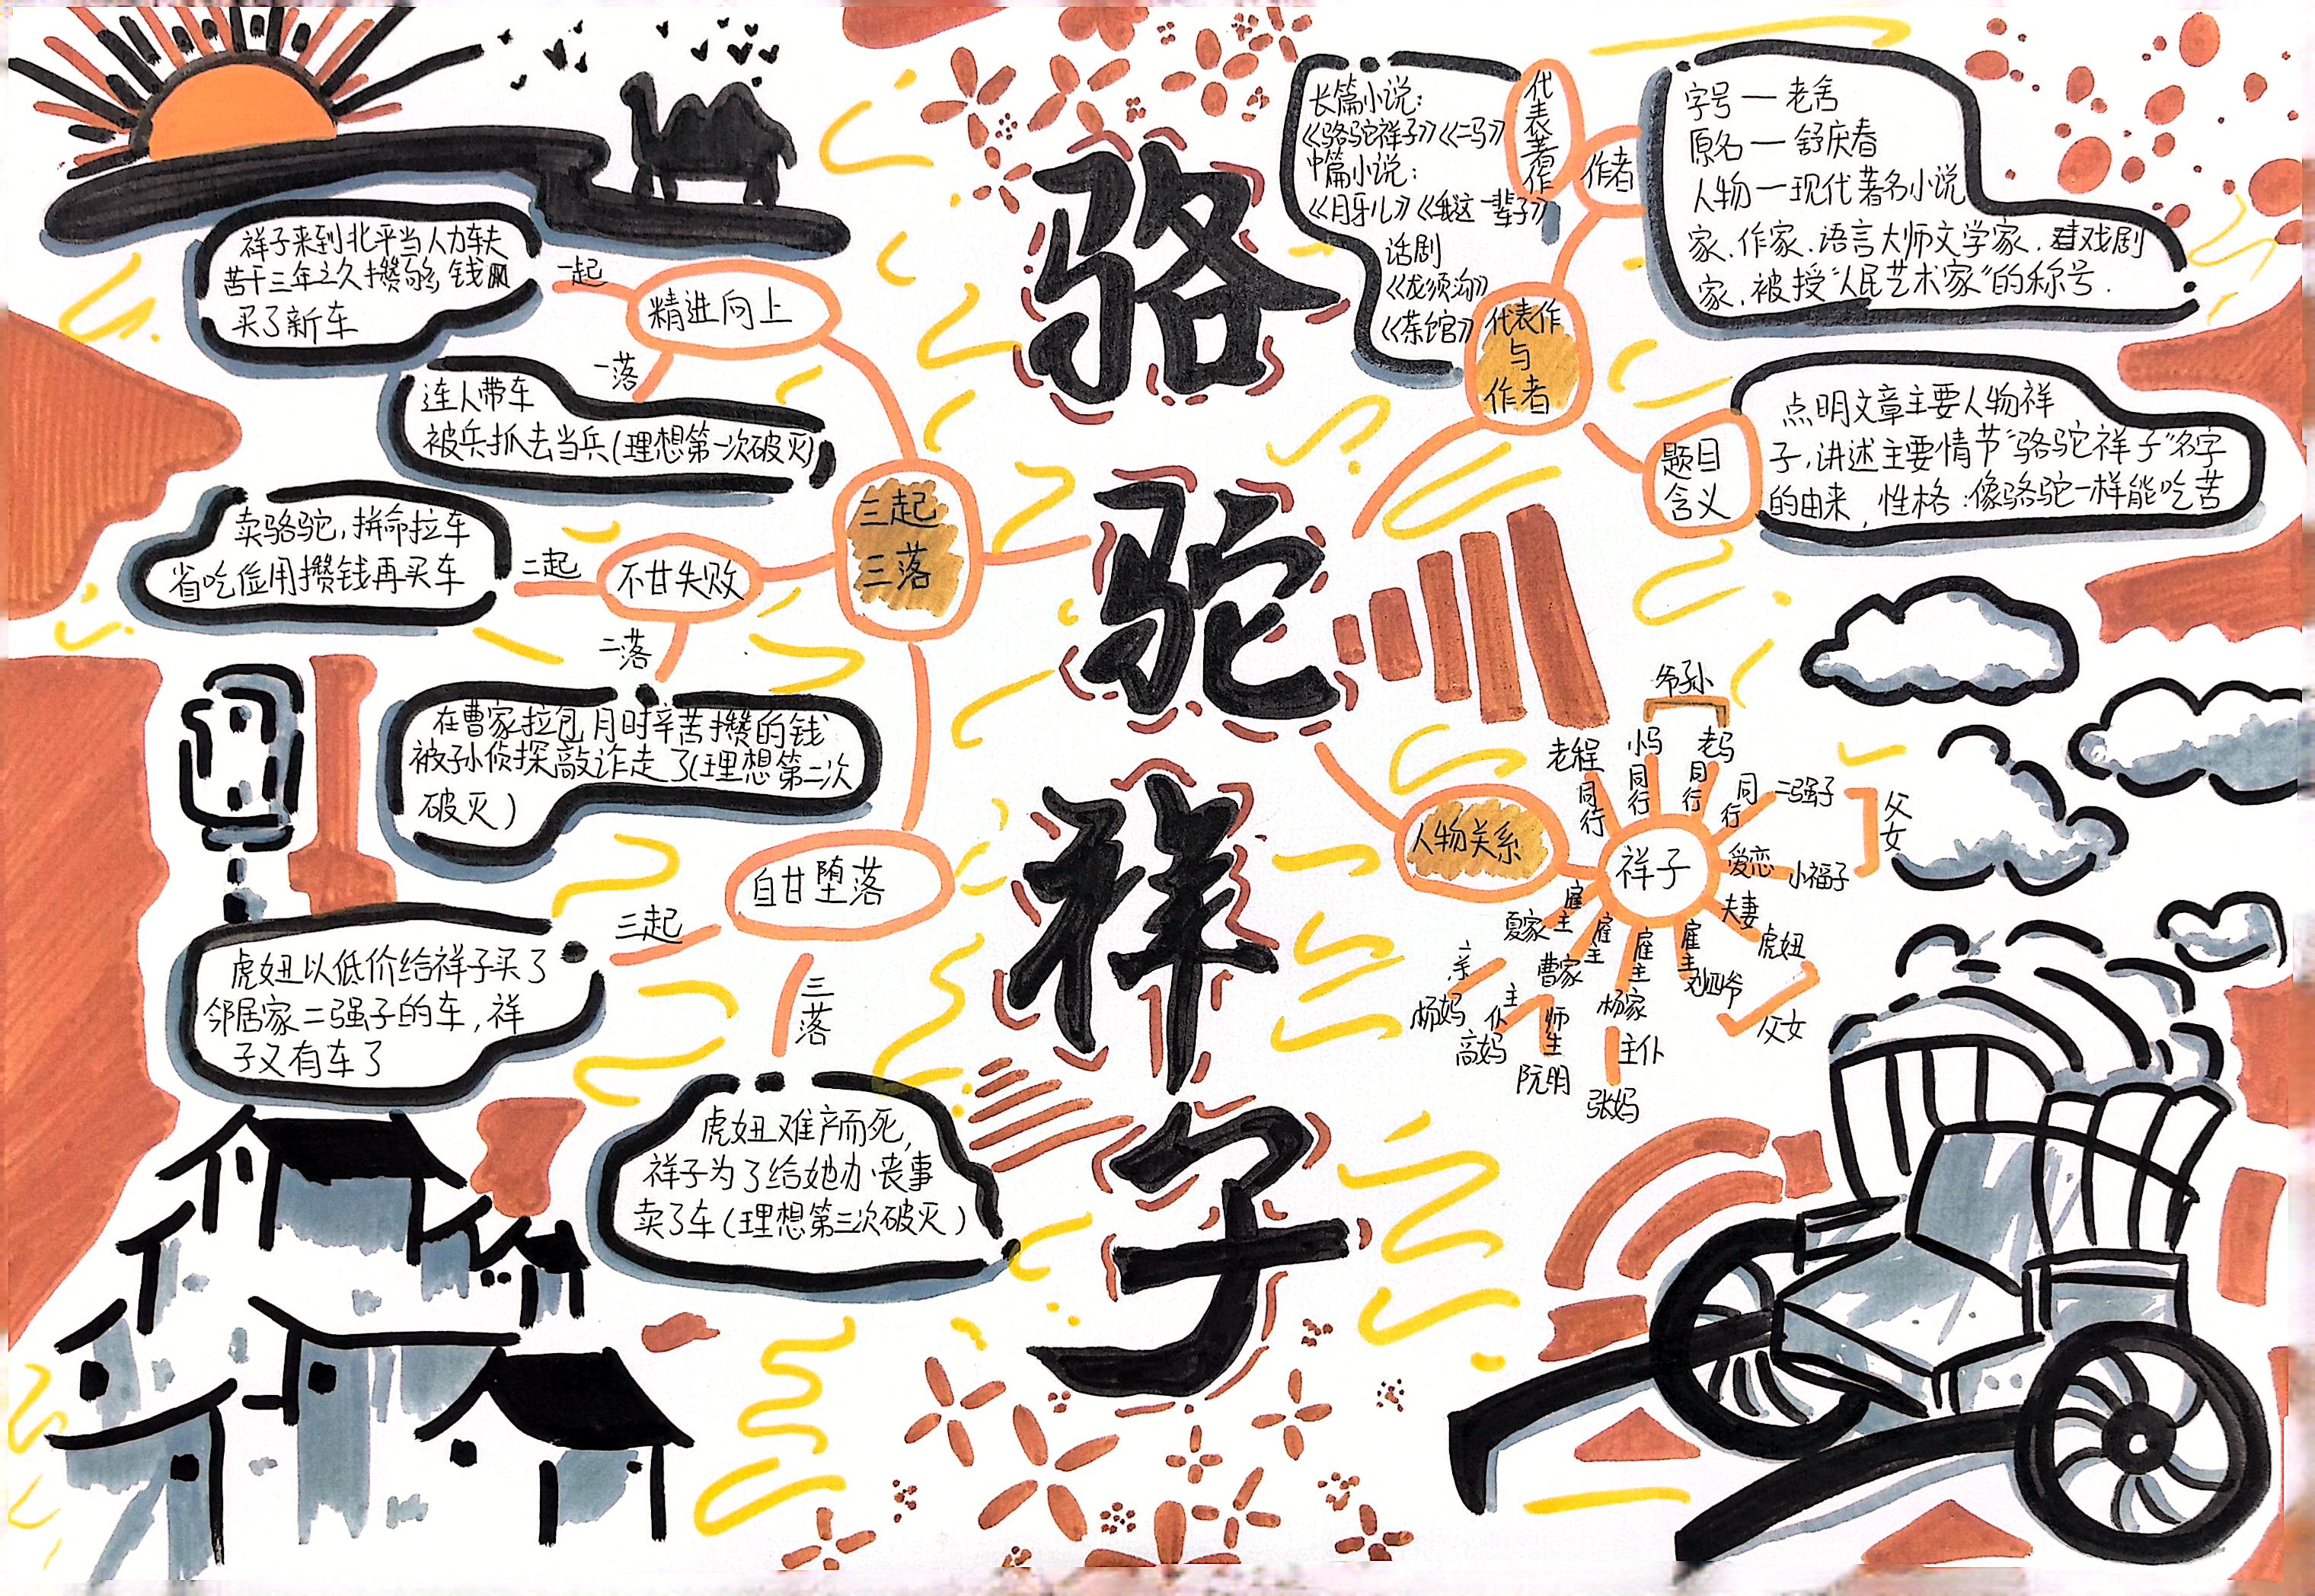 骆
驼
祥
子
三起
三落
精进向上
一起
祥子来到北平当人力车夫
苦干三年之久攒够钱
买了新车
一落
连人带车
被兵抓去当兵(理想第一次破灭)
不甘失败
二起
卖骆驼,拼命拉车
省吃俭用攒钱再买车
二落
在曹家拉包月时辛苦攒的钱
被孙侦探敲诈走了(理想第二次
破灭)
自甘堕落
三起
虎妞以低价给祥子买了
邻居家二强子的车,祥
子又有车了
三落
虎妞难产而死,
祥子为了给她办丧事
卖了车(理想第三次破灭)
代表作
与
作者
代表著作
长篇小说:
《骆驼祥子》《二马》
中篇小说:
《月牙儿》《我这一辈子》
话剧
《龙须沟》
《茶馆》
作者
字号一老舍
原名一舒庆春
人物一现代著名小说
家、作家、语言大师文学家、戏剧
家、被授“人民艺术家”的称号.
题目
含义
点明文章主要人物祥
子,讲述主要情节“骆驼祥子”名字
的由来,性格:像骆驼一样能吃苦
人物关系
祥子
爷孙
老程
同行
小马
同行
老马
同行
二强子
同行
父女
爱恋
小福子
夫妻
虎妞
父女
雇主
刘四爷
雇主
杨家
主仆
张妈
雇主
曹家
师生
阮明
主仆
高妈
雇主
夏家
亲
杨妈